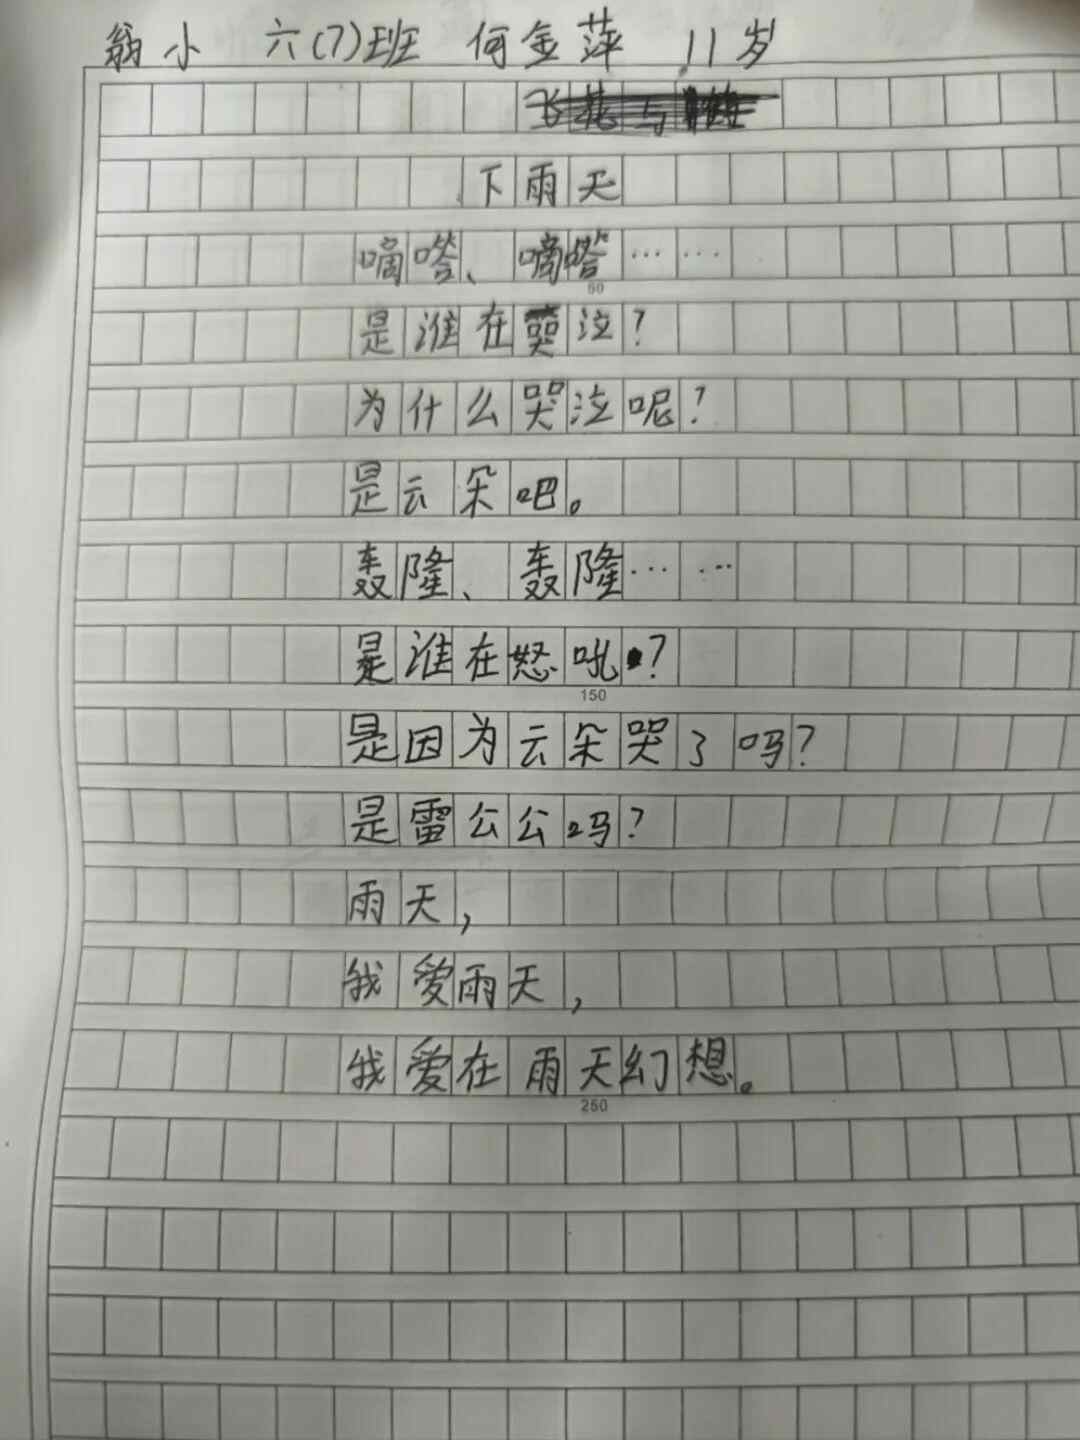 翁小 六(7)班 何金萍 11岁
下雨天
嘀嗒、嘀嗒……
60
是谁在哭泣?
为什么哭泣呢?
是云朵吧。
轰隆、轰隆……
是谁在怒吼?
150
是因为云朵哭了吗?
是雷公公吗?
雨天,
我爱雨天,
我爱在雨天幻想。
250